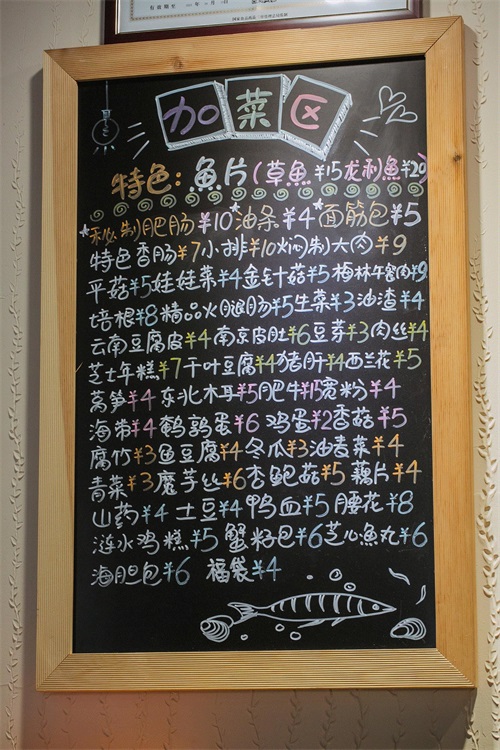 加菜区
特色：魚片（草魚¥15龙利魚¥20）
*秘制肥肠¥10*油条¥4*面筋包¥5
特色香肠¥7小排¥10焖制大肉¥9
平菇¥5娃娃菜¥4金针菇¥5梅林午餐肉¥9
培根¥8精品火腿肠¥5生菜¥3油渣¥4
云南豆腐皮¥4南京皮肚¥6豆芽¥3肉丝¥4
芝士年糕¥7千叶豆腐¥4猪肝¥4西兰花¥5
莴笋¥4东北木耳¥5肥牛¥15宽粉¥4
海带¥4鹌鹑蛋¥6鸡蛋¥2香菇¥5
腐竹¥3鱼豆腐¥4冬瓜¥3油麦菜¥4
青菜¥3魔芋丝¥6杏鲍菇¥5藕片¥4
山药¥4土豆¥4鸭血¥5腰花¥8
涟水鸡糕¥5蟹籽包¥6芝心魚丸¥6
海胆包¥6福袋¥4